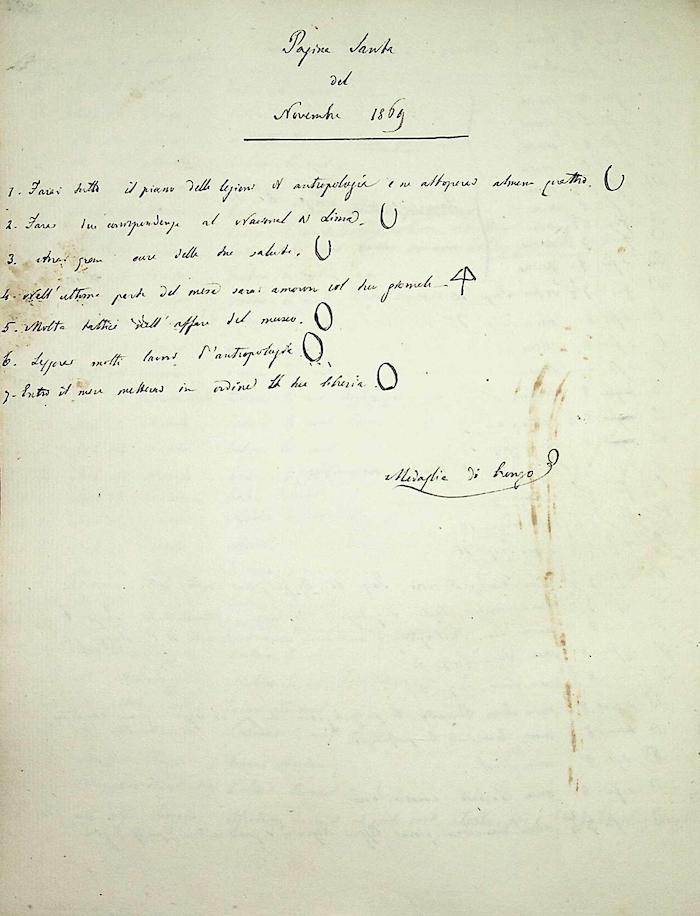 Pagina Santa
del
Novembre 1869
1. Farai tutto il piano delle lezioni d'antropologia e ne abbozzerai almeno quattro.
2. Farai due corrispondenze al Nacional di Lima.
3. Avrai gran cura delle due salute.
4. Nell'ultima parte del mese sarai amoroso col tuo giornale.
5. Molta tattica nell'affare del museo.
6. Leggerai molti lavori d'antropologia.
7. Entro il mese metterai in ordine la tua libreria.
Medaglia di bronzo